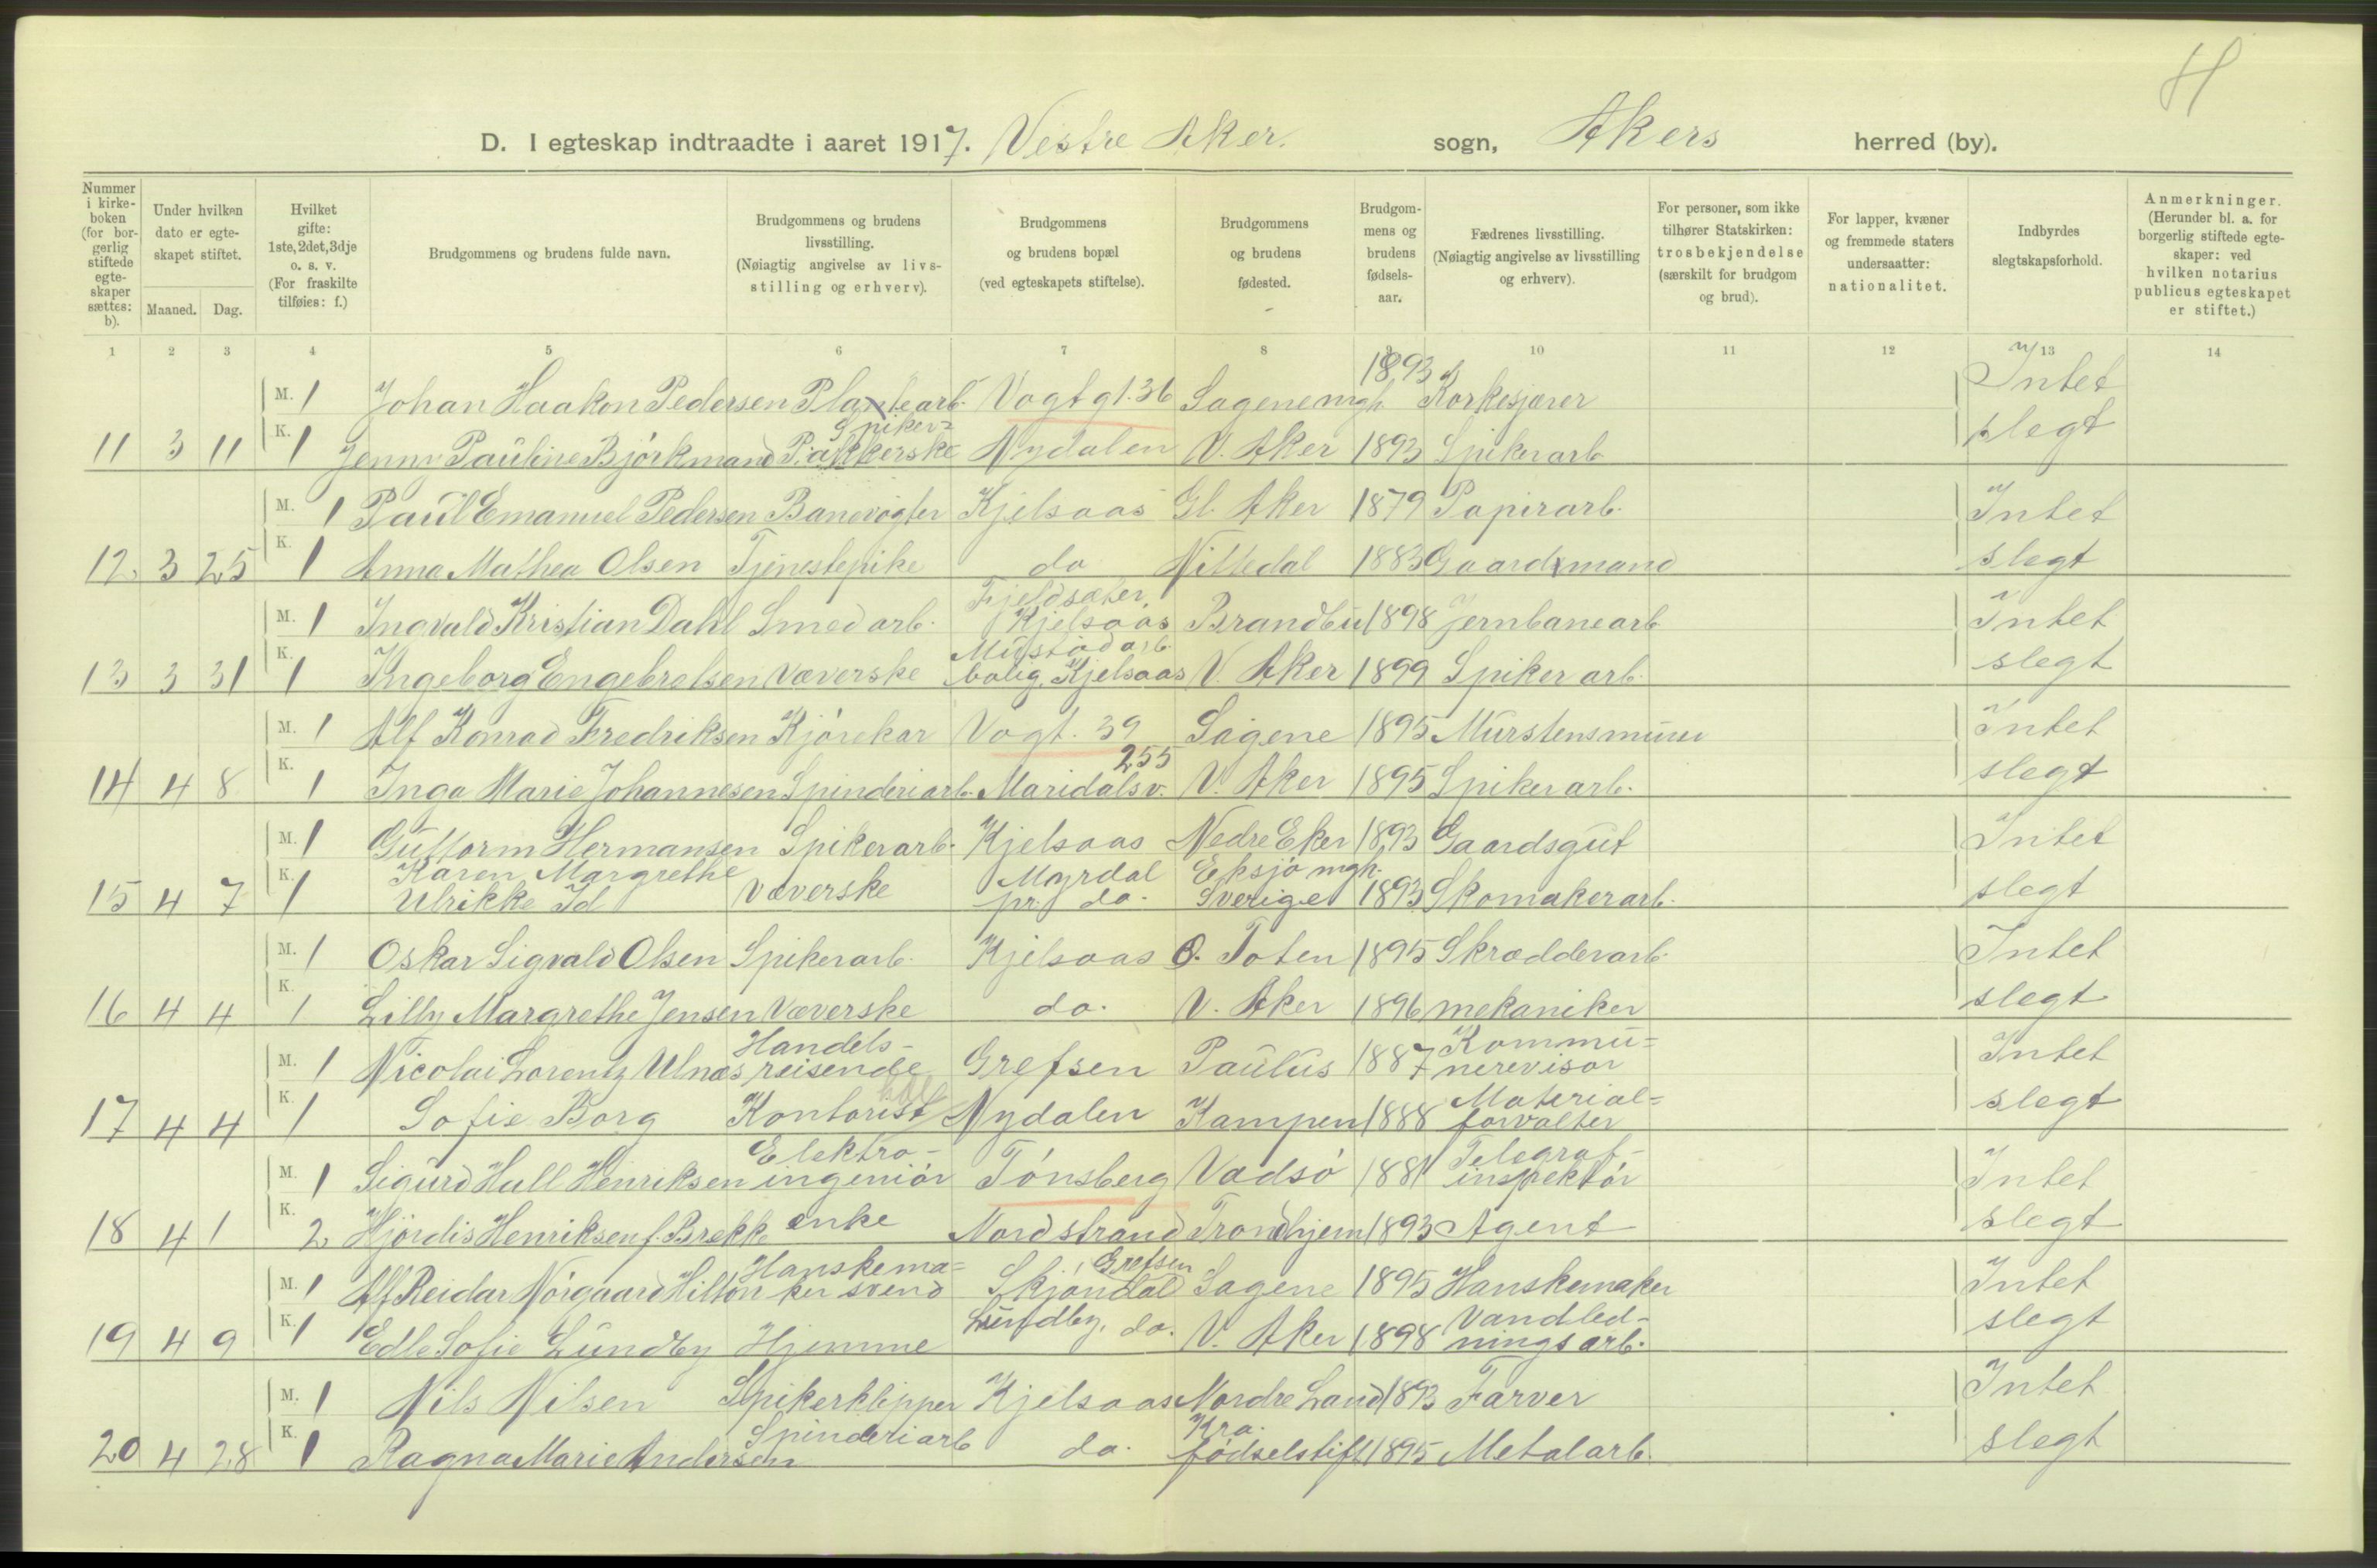 H
D. I egteskap indtraadte i aaret 1917. Vestre Aker. sogn, Akers herred (by).
Nummer i kirke-boken (for bor-gerlig stiftede egte-skaper sættes: b).
Under hvilken dato er egte-skapet stiftet.
Maaned. Dag.
Hvilket gifte: 1ste, 2det, 3dje o. s. v. (For fraskilte tilføies: f.)
Brudgommens og brudens fulde navn.
Brudgommens og brudens livsstilling. (Nøiagtig angivelse av livs-stilling og erhverv).
Brudgommens og brudens bopæl (ved egteskapets stiftelse).
Brudgommens og brudens fødested.
Brudgom-mens og brudens fødsels-aar.
Fædrenes livsstilling. (Nøiagtig angivelse av livsstilling og erhverv).
For personer, som ikke tilhører Statskirken: trosbekjendelse (særskilt for brudgom og brud).
For lapper, kvæner og fremmede staters undersaatter: nationalitet.
Indbyrdes slegtskapsforhold.
Anmerkninger. (Herunder bl. a. for borgerlig stiftede egte-skaper: ved hvilken notarius publicus egteskapet er stiftet.)
1 2 3 4 5 6 7 8 9 10 11 12 13 14
M. 1 Johan Haakon Pedersen Platearb. Vogtgt. 36 Sagene mgh 1893 Korkesjærer Intet
11 3 11 K. 1 Jenny Pauline Björkmand Spiker= Pakkerske Nydalen V. Aker 1893 Spikerarb slegt
M. 1 Paul Emanuel Pedersen Banevogter Kjelsaas Gl. Aker 1879 Papirarb. Intet
12. 3 25 K. 1 Anna Mathea Olsen Tjenestepike do Nittedal 1883 Gaardmand slegt
M. 1 Ingvald Kristian Dahl Smedarb. Fjeldsæter, Kjelsaas Brandbu 1898 Jernbanearb Intet
13 3 31 K. 1 Ingeborg Engebretsen Væverske Mustad arb. bolig. Kjelsaas V. Aker 1899 Spiker arb. slegt
M. 1 Alf Konrad Fredriksen Kjörekar Vogt. 39 Sagene 1895 Murstensmurer Intet
14 4 8 K. 1 Inga Marie Johannesen Spinderiarb. Maridalsv. 255 V. Aker 1895 Spikerarb. slegt
M. 1 Guttorm Hermansen Spikerarb. Kjelsaas Nedre Eker 1893 Gaardsgut Intet
15 4 7 K. 1 Karen Margrethe Ulrikke Id Væverske Myrdal pr. do. Eksjö mgh. Sverige 1893 Skomakerarb. slegt
M. 1 Oskar Sigvald Olsen Spikerarb. Kjelsaas Ö. Toten 1895 Skrædderarb. Intet
16 4 4 K. 1 Lilly Margrethe Jensen Væverske do. V. Aker 1896 mekaniker slegt
M. 1 Nicolai Lorentz Ulnæs Handels-reisende Grefsen Paulus 1887 Kommu=nerevisor Intet
17 4 4 K. 1 Sofie Borg Kontorist Nydalen Kampen 1888 Material=forvalter slegt
M. 1 Sigurd Hull Henriksen Elektro-ingeniör Tönsberg Vadsö 1881 Telegraf-inspektör Intet
18 4 1 K. 2 Hjördis Henriksen f. Brekke enke Nordstrand Trondhjem 1893 Agent slegt
M. 1 Alf Reidar Nörgaard Hilton Hanskema=ker svend Skjöndal Grefsen Sagene 1895 Hanskemaker Intet
19 4 9 K. 1 Edle Sofie Lundby Hjemme Lundby. do. V. Aker 1898 Vandled-ningsarb. slegt
M. 1 Nils Nilsen Spikerklipper Kjelsaas Nordre Land 1893 Farver Intet
20 4 28 K. 1 Ragna Marie Andersen Spinderiarb do. Kra. fødselstift 1895 Metalarb. slegt